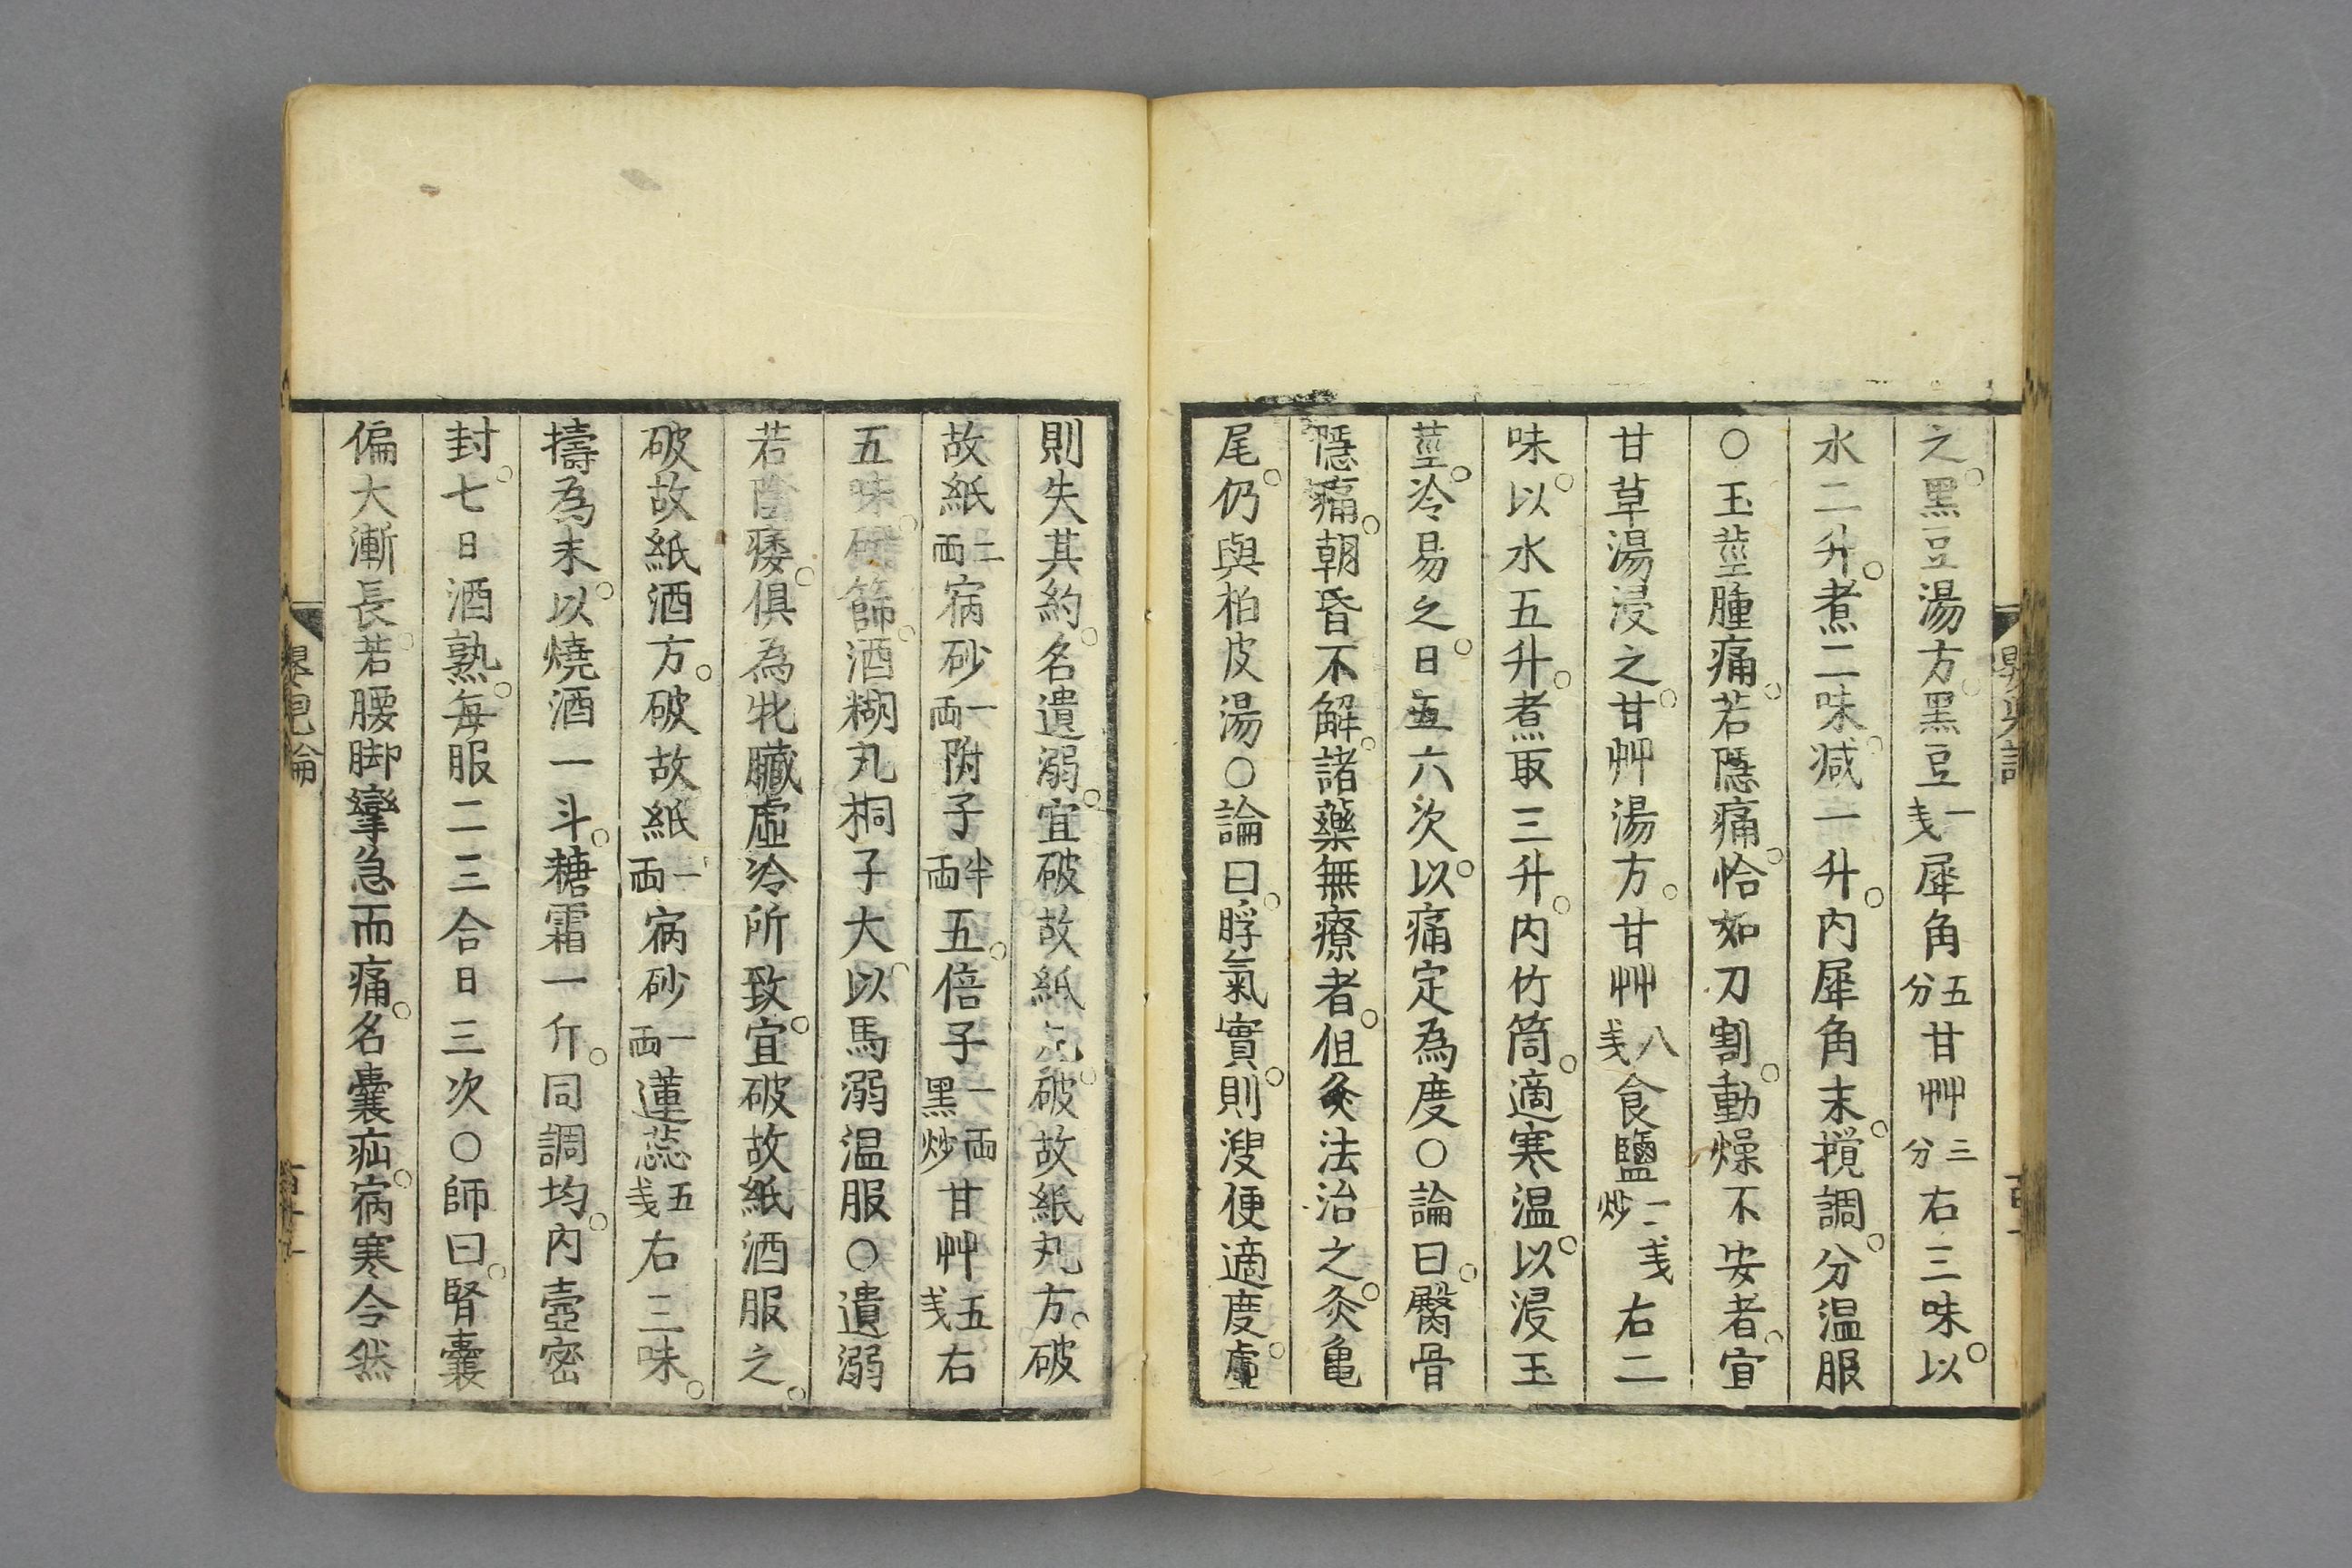 之黑豆湯方黑豆一戔犀角五分甘艸三分右三味以
水二升煮二味减一升内犀角末攪調分温服
○玉莖腫痛若隱痛恰如刀割動燥不安者宜
甘草湯浸之甘艸湯方甘艸八戔食鹽二戔炒右二
味以水五升煮取三升内竹筒適寒温以浸玉
莖冷易之日五六次以痛定為度○論曰臀骨
隱痛朝昏不解諸藥無療者但灸法治之灸龜
尾仍與柏皮湯○論曰脬氣實則溲便適度虛
則失其約名遺溺宜破故紙丸破故紙丸方破
故紙二両病砂一両附子半両五倍子一両黑炒甘艸五戔右
五味篩酒糊丸桐子大以馬溺温服○遺溺
若陰痿俱為牝臟虛冷所致宜破故紙酒服之
破故紙酒方破故紙一両病砂一両蓮蕊五戔右三味
擣為末以燒酒一斗糖霜一斤同調均内壺密
封七日酒熟每服二三合日三次○師曰腎囊
偏大漸長若腰脚攣急而痛名囊疝病寒令然